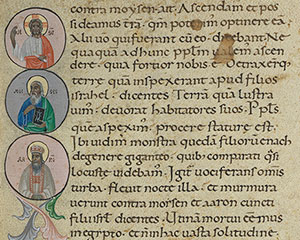 contra moysen ait. Ascendam et pos
sideamus tra. qm poterim optinere eā.
Alii uo qui fuerant cū eo. dicebant. Ne
quaquā ad hunc pplm ualem ascen
dere. quia fortior nobis ē. Detraxerq
terre quā inspexerant apud filios
israhel. dicentes. Terrā quā lustra
uim. deuorat habitatores suos. Ppls
quē aspexim. procere stature est.
Ibi uidim monstra quedā filiorū enach
de genere giganteo. quib comparati qsi
locuste uidebam. Igit uociferans omis
turba. fleuit nocte illa. et murmura
uerunt contra moisen et aaron cuncti
filii isrl dicentes. Utinā mortui eēmus
in egypto. et n in hac uasta solitudine.